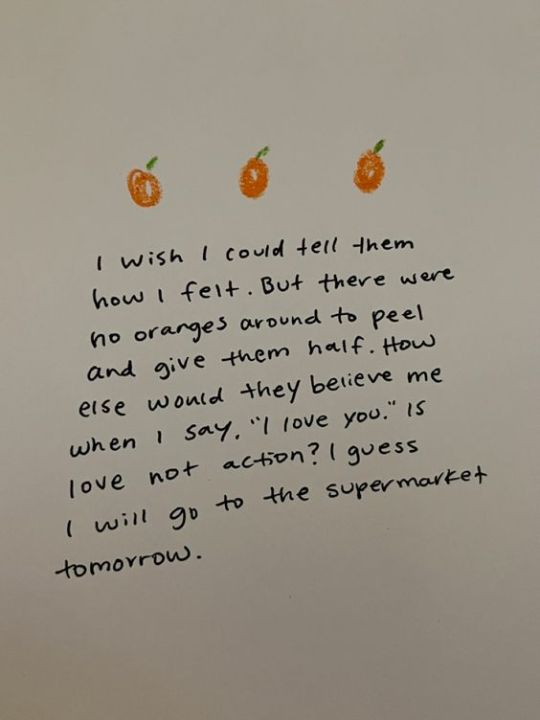 I wish I could tell them
how I felt. But there were
no oranges around to peel
and give them half. How
else would they believe me
when I say, "I love you." Is
love not action? I guess
I will go to the supermarket
tomorrow.